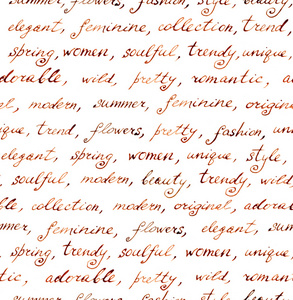 summer, flowers, fashion, style, beauty,
elegant, feminine, collection, trend,
spring, women, soulful, trendy, unique,
dorable, wild, pretty, romantic, ad
al, modern, summer, feminine, origina
que, trend, flowers, pretty, fashion, un
elegant, spring, women, unique, style,
, soulful, modern, beauty, trendy, wild,
ble, collection, modern, original, adorab
mmer, feminine, flowers, elegant, sum
spring, trendy, soulful, women, unique,
tic, adorable, pretty, wild, roman
summer, flowers, fashion, style, beauty